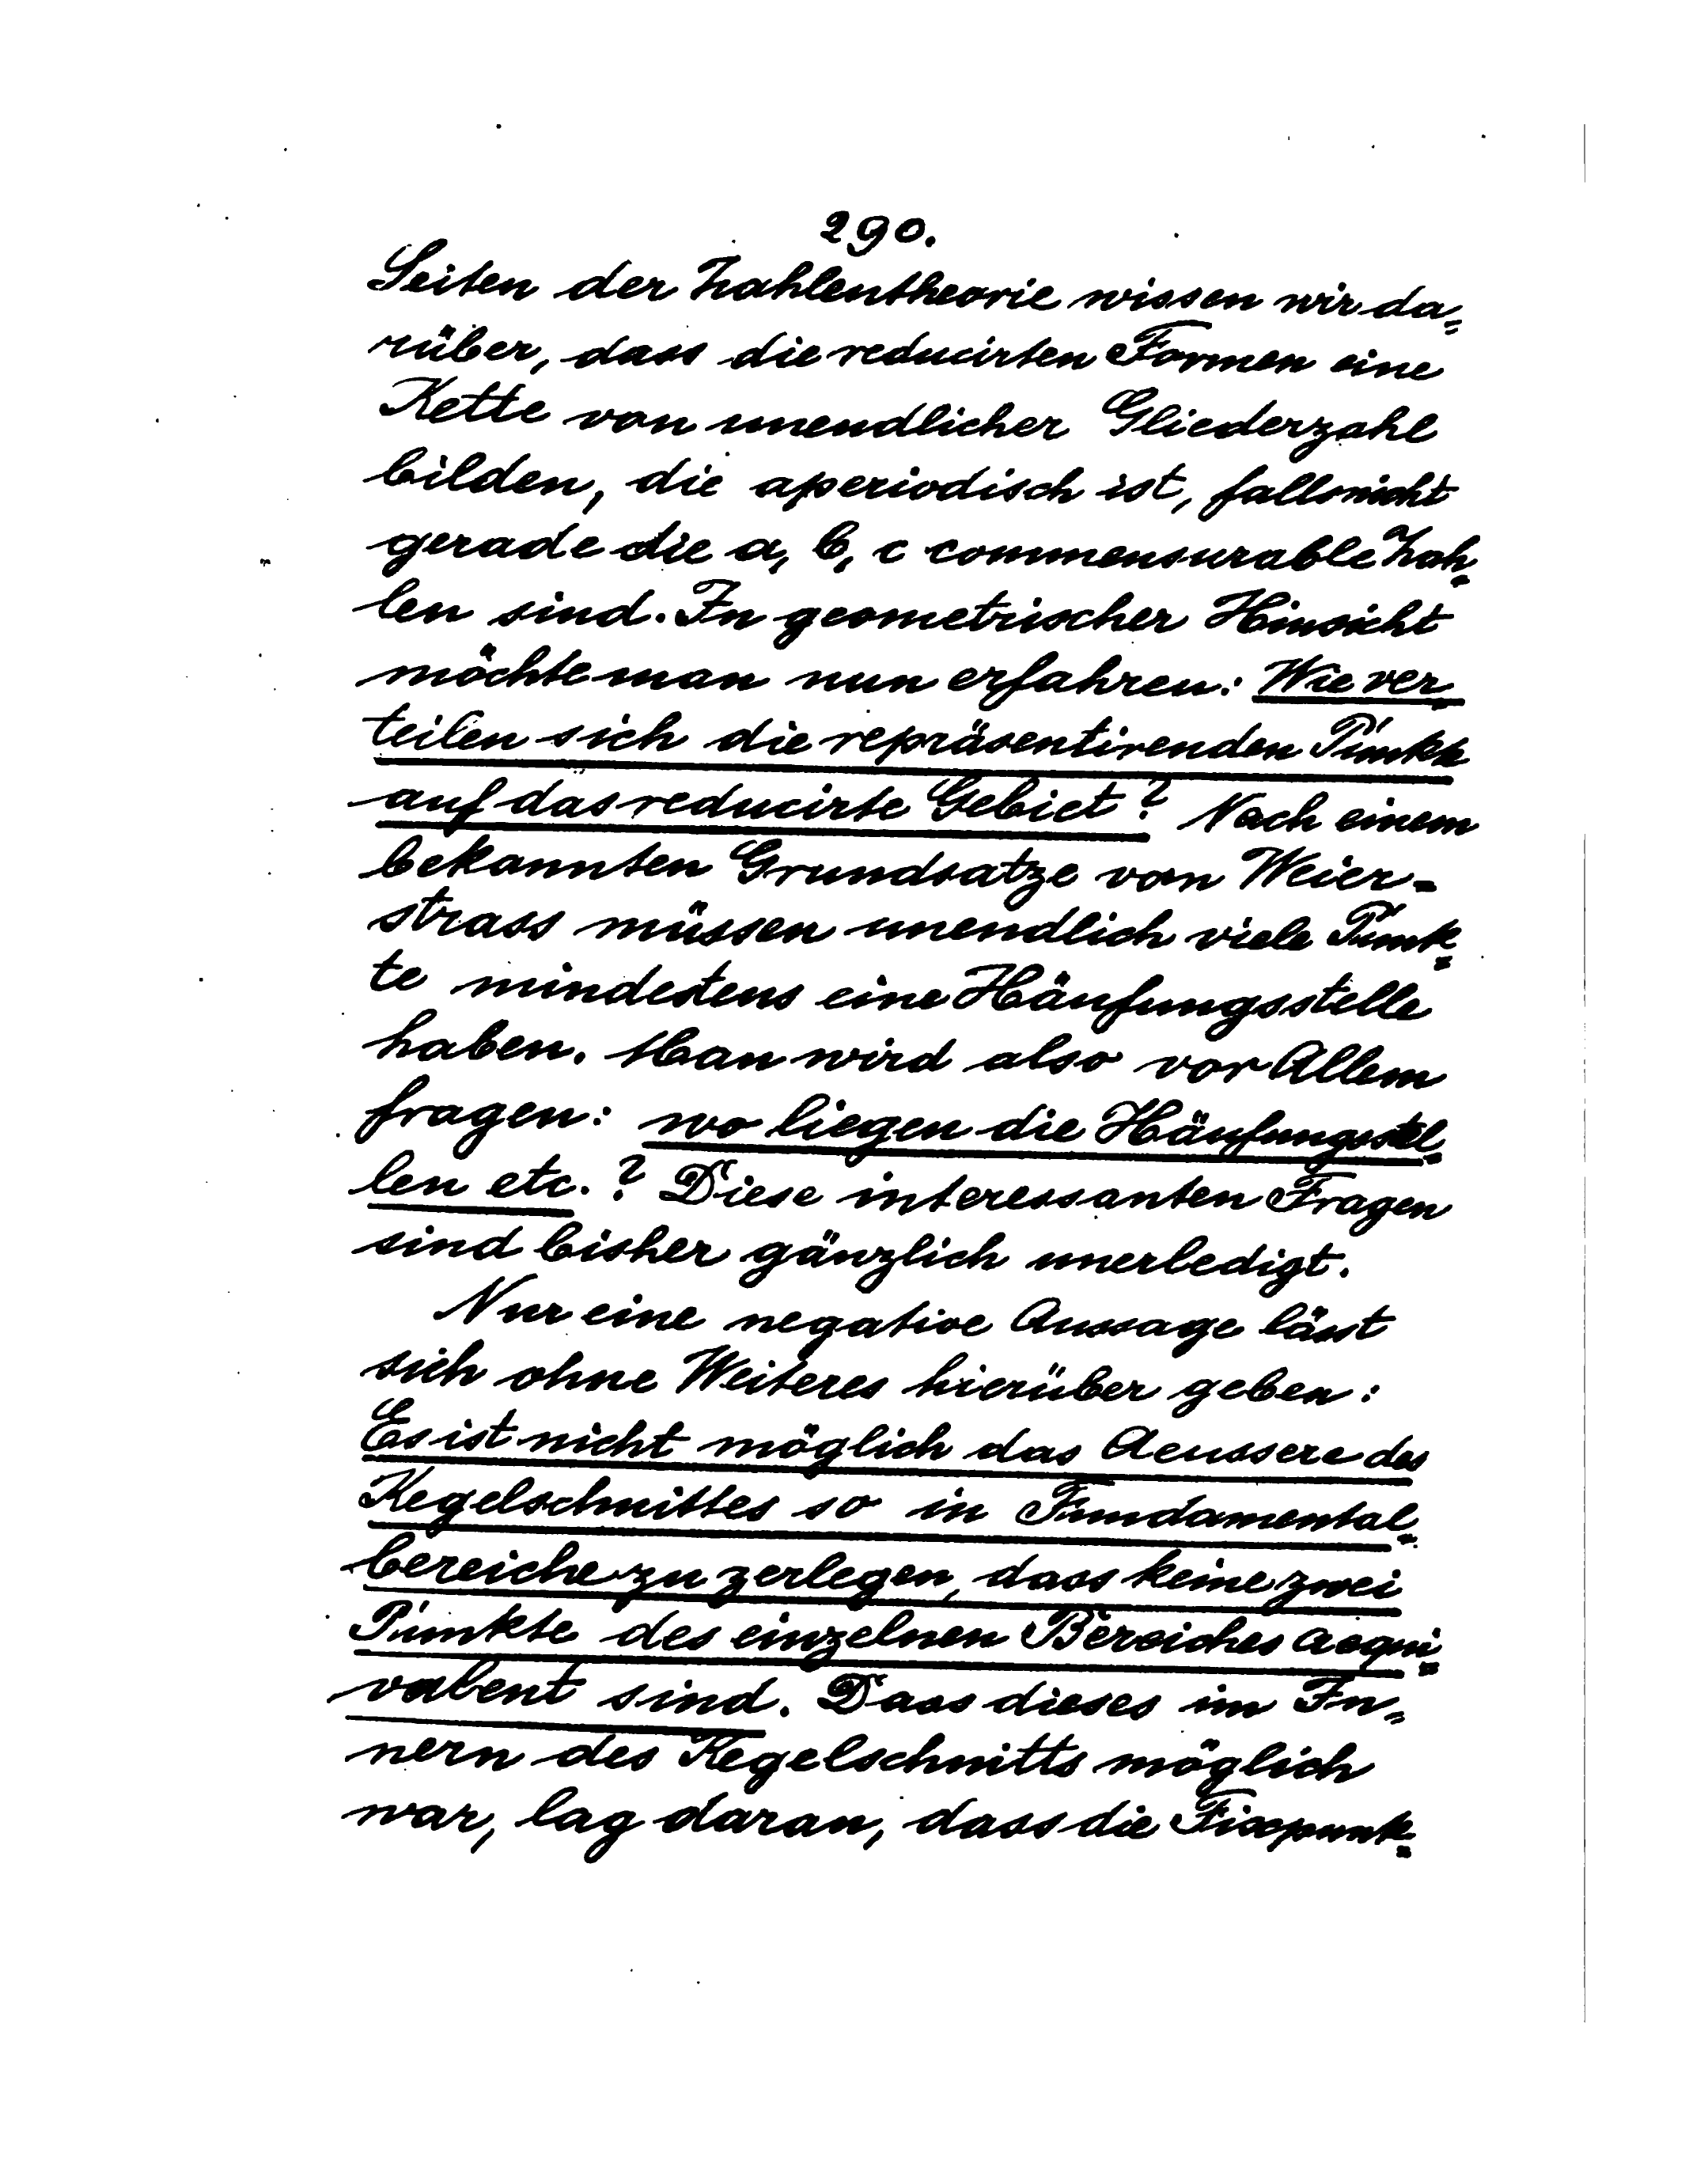 290.
Seiten der Zahlentheorie wissen wir da=
rüber, dass die reducirten Formen eine
Kette von unendlicher Gliederzahl
bilden, die aperiodisch ist, falls nicht
gerade die a, b, c commensurable Zah=
len sind. In geometrischer Hinsicht
möchte man nun erfahren: Wie ver=
teilen sich die repräsentirenden Punkte
auf das reducirte Gebiet? Nach einem
bekannten Grundsatze von Weier=
strass müssen unendlich viele Punk=
te mindestens eine Häufungsstelle
haben. Man wird also vor Allem
fragen: wo liegen die Häufungsstel=
len etc.? Diese interessanten Fragen
sind bisher gänzlich unerledigt.
Nur eine negative Aussage lässt
sich ohne Weiteres hierüber geben:
Es ist nicht möglich das Aeussere des
Kegelschnittes so in Fundamental=
bereiche zu zerlegen, dass keine zwei
Punkte des einzelnen Bereiches aequi=
valent sind. Dass dieses im In=
nern des Kegelschnitts möglich
war, lag daran, dass die Fixpunk=